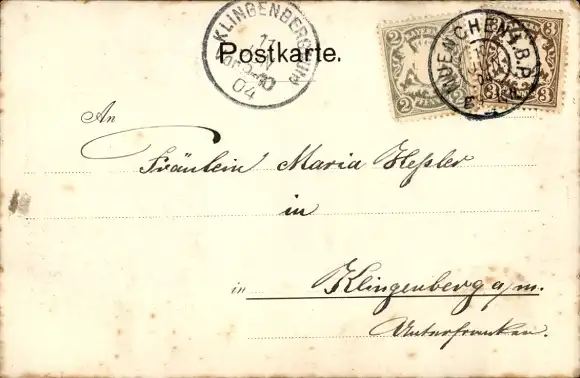 KLINGENBERG
11
04
Postkarte.
BAYERN
2
2
MUENCHEN 1.B.P.
3
3
An
Fräulein Maria Heßler
in
in Klingenberg a/m.
Unterfranken.